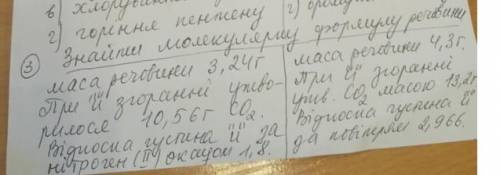 в) хлорув
г) горіння пентену
г)
Знайти молекулярну формулу речовини
3
маса речовини 3,24г.
При її згоранні утво-
рилося 10,56г CO₂.
Відносна густина її за
нітроген (II) оксидом 1,8.
маса речовини 4,3г.
При її згоранні
утв. CO₂ масою 13,2г
Відносна густина її
за повітрям 2,966.